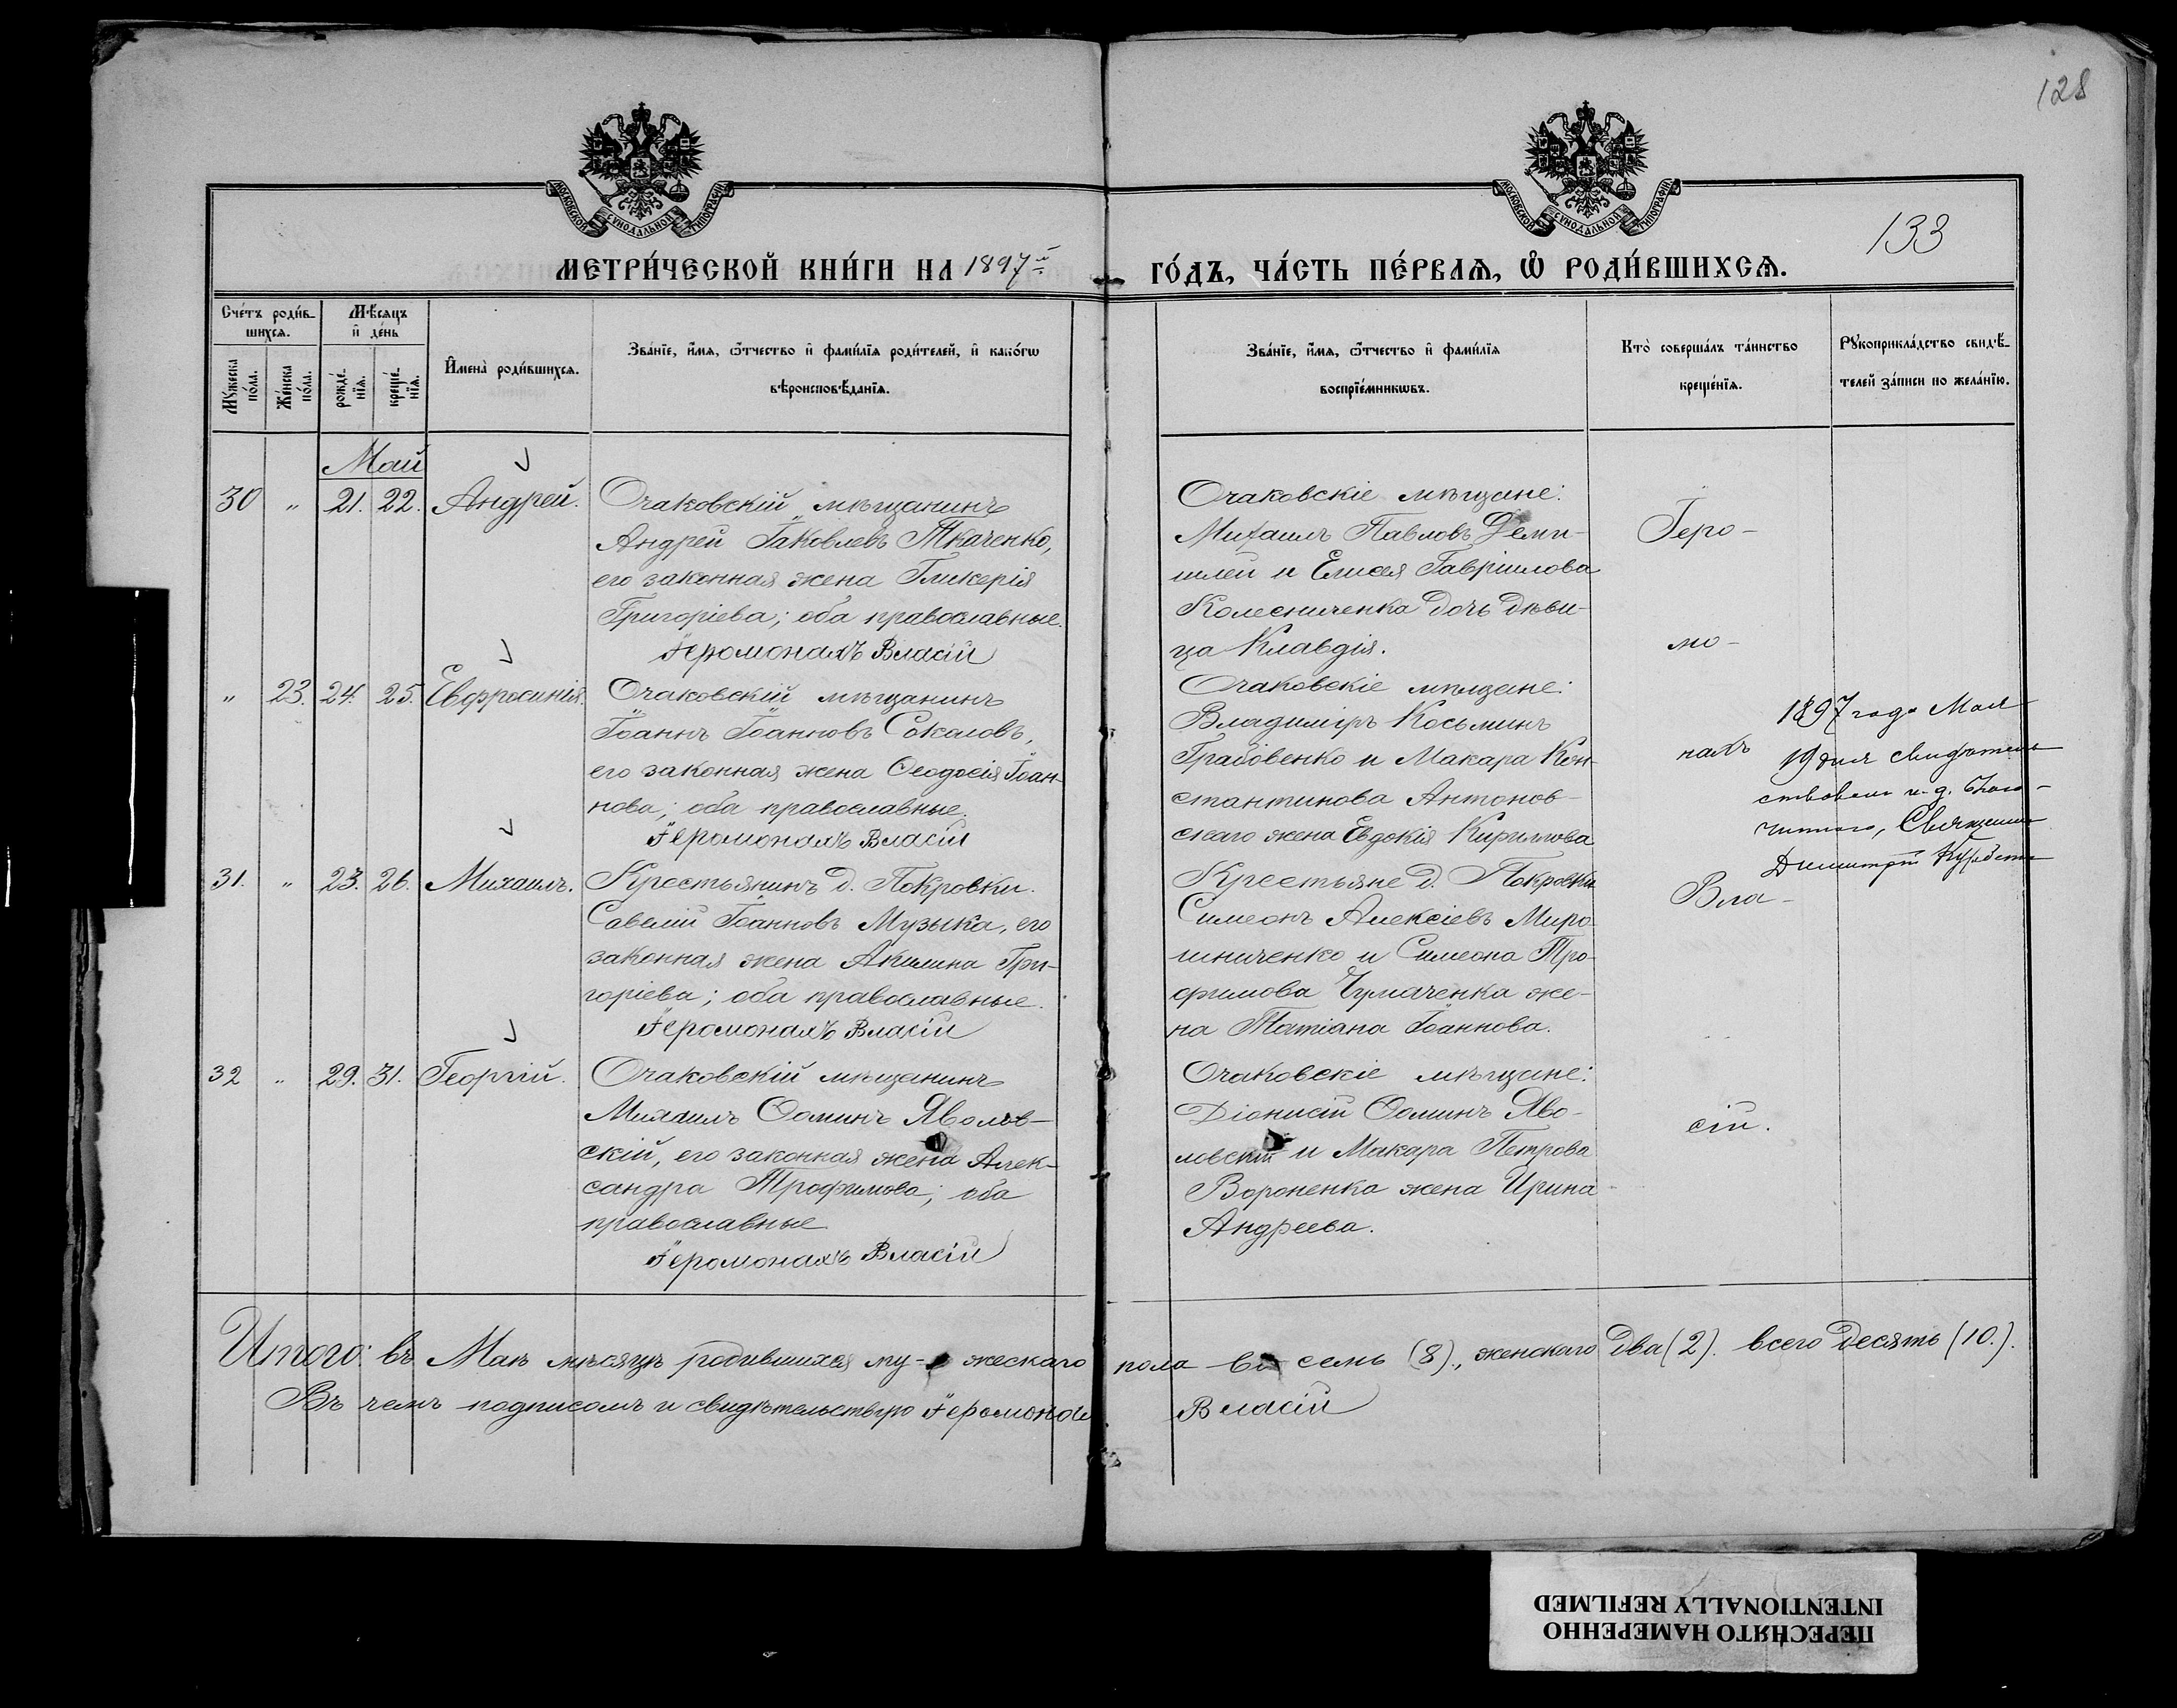 128
133
МОСКОВСКОЙ СУНОДАЛЬНОЙ ТИПОГРАФІИ
МОСКОВСКОЙ СУНОДАЛЬНОЙ ТИПОГРАФІИ
МЕТРИ́ЧЕСКОЙ КНИ́ГИ НА 1897й
ГО́ДЪ, ЧА́СТЬ ПЕ́РВАѦ, Ѽ РОДИ́ВШИХСѦ.
Сче́тъ роди́в-
шихсѧ.
Мꙋ́жеска по́ла.
Же́нска по́ла.
Мѣ́сѧцъ
и҆ де́нь
рожде́-
нїѧ.
креще́-
нїѧ.
И҆мена̀ роди́вшихсѧ.
Зва́нїе, и҆́мѧ, ѻ҆́тчество и҆ фами́лїѧ роди́телей, и҆ како́гѡ
вѣроисповѣ́данїѧ.
Зва́нїе, и҆́мѧ, ѻ҆́тчество и҆ фами́лїѧ
воспрїе́мникѡвъ.
Кто̀ соверша́лъ та́инство
креще́нїѧ.
Рꙋкоприкла́дство свидѣ́-
телей за́писи по жела́нїю.
Май
30 " 21. 22. Андрей.
Очаковскій мѣщанинъ
Андрей Іаковлевъ Ткаченко,
его законная жена Гликерія
Григоріева; оба православные.
Іеромонахъ Власій
Очаковскіе мѣщане:
Михаилъ Павловъ Деми-
и Елисея Гавріилова
Колесниченка дочь дѣви-
ца Клавдія.
" 23. 24. 25. Евфросинія.
Очаковскій мѣщанинъ
Іоаннъ Іоанновъ Соколовъ,
его законная жена Ѳеодосія Іоан-
нова; оба православные.
Іеромонахъ Власій
Очаковскіе мѣщане:
Владиміръ Косьминъ
Грабовенко и Макара Кон-
стантинова Антонов-
скаго жена Евдокія Кириллова
31. " 23. 26. Михаилъ.
Крестьянинъ д. Покровки
Савелій Іоанновъ Музыка, его
законная жена Акилина Гри-
горіева; оба православные.
Іеромонахъ Власій
Крестьяне д. Покровки
Симеонъ Алексіевъ Миро-
шниченко и Симеона Тро-
фимова Чумаченка же-
на Татіана Іоаннова.
32 " 29. 31. Георгій.
Очаковскій мѣщанинъ
Михаилъ Ѳоминъ Яволов-
скій, его законная жена Алек-
сандра Трофимова; оба
православные
Іеромонахъ Власій
Очаковскіе мѣщане:
Діонисій Ѳоминъ Яво-
ловскій и Макара Петрова
Вороненка жена Ирина
Андреева.
Іеро-
мо-
нахъ
Вла-
сій.
1897 года Мая
19 дня
и. д. Благо-
чиннаго, Священникъ
Димитрій
Итого: въ Маѣ мѣсяцѣ родившихся му- жескаго пола восемь (8)., женскаго два (2). всего десять (10.).
Въ чемъ подписомъ и свидѣтельствую Іеромонахъ Власій
ПЕРЕСНЯТО НАМЕРЕННО
INTENTIONALLY REFILMED